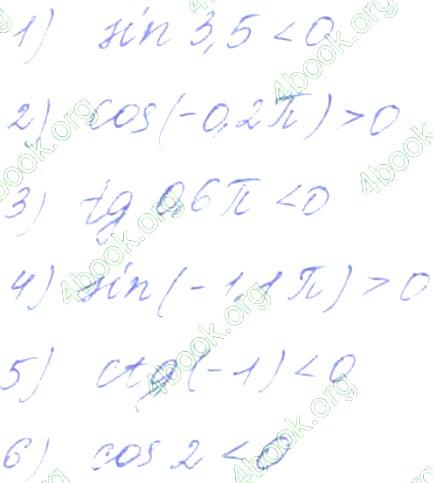 1) sin 3,5 < 0
2) cos(-0,2π) > 0
3) tg 0,6π < 0
4) sin(-1,1π) > 0
5) ctg(-1) < 0
6) cos 2 < 0
4book.org
4book.org
4book.org
4book.org
4book.org
4book.org
4book.org